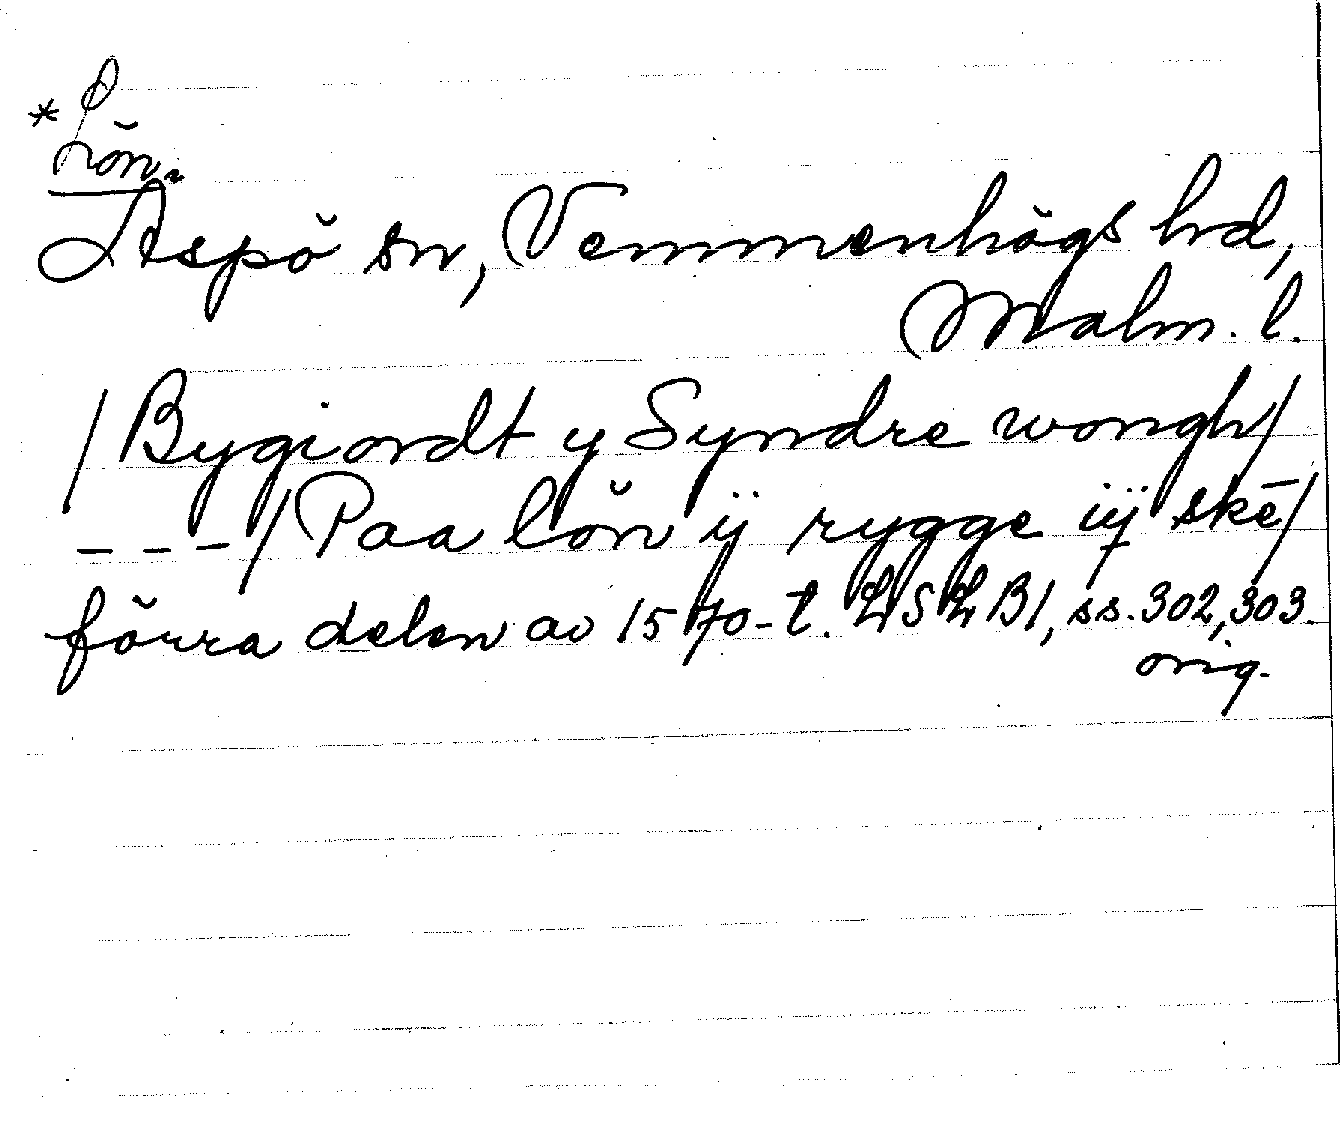 * Lön.
Äspö sn, Vemmenhögs hd,
Malm. l.
/Bygiordt y Syndre wongh/
---/Paa lön ij rygge iij skē/
förra delen av 1570-t. LSLB1, ss. 302, 303.
orig.